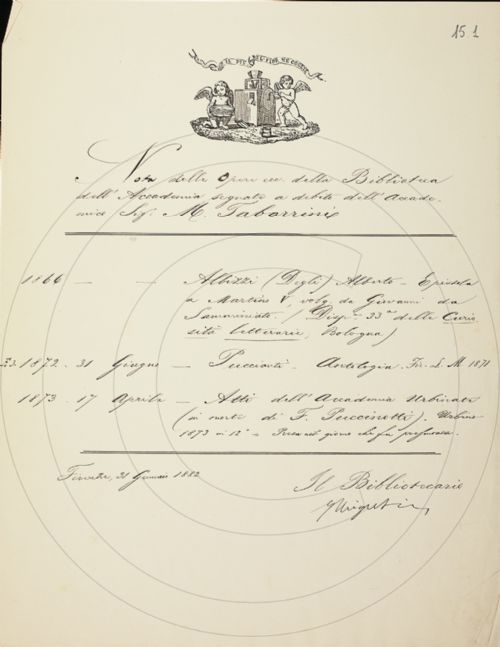 151
IL PIÙ BEL FIOR NE COGLIE
Nota delle Opere ecc. della Biblioteca
dell' Accademia segnate a debito dell' Accade-
mico Sig. M. Tabarrini
1866 — — Albizzi (Degli) Alberto — Epistola
a Martino V, volg. da Giovanni da
Samminiato. (Disp. 33ª delle Curio
sità letterarie, Bologna)
1872 - 31 Giugno — Puccianti — Antologia. Fir. L. M. 1871
1873 - 17 Aprile — Atti dell' Accademia Urbinate
(in morte di F. Puccinotti). Urbino
1873 in 12º —
Firenze, 21 Gennaio 1882
Il Bibliotecario